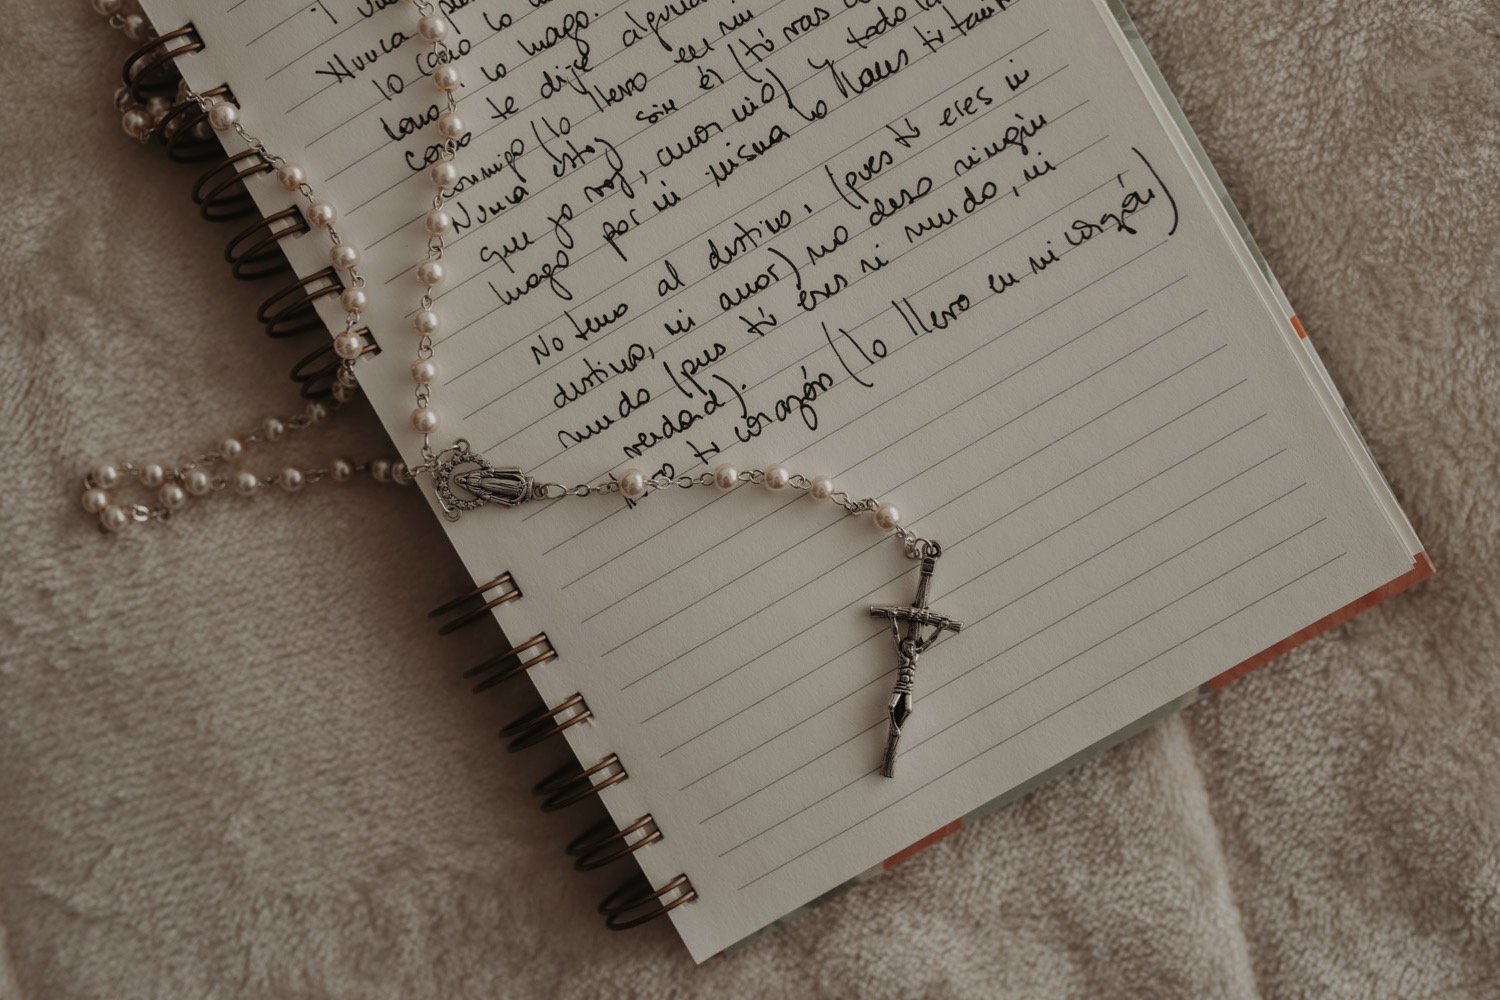 Nunca
lo como lo hago.
como te dije alguna
conmigo (lo llevo en mi
Nunca estoy sin él (tú vas
que yo voy, amor mío) y todo lo
hago por mi misma lo haces tú tam
No temo al destino. (pues tú eres mi
destino, mi amor) no deseo ningún
mundo (pues tú eres mi mundo, mi
verdad).
tu corazón (lo llevo en mi corazón)